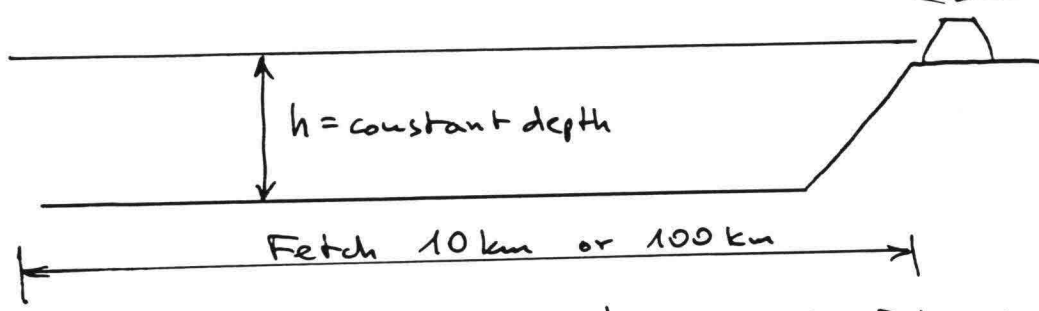 h = constant depth
Fetch 10 km or 100 km